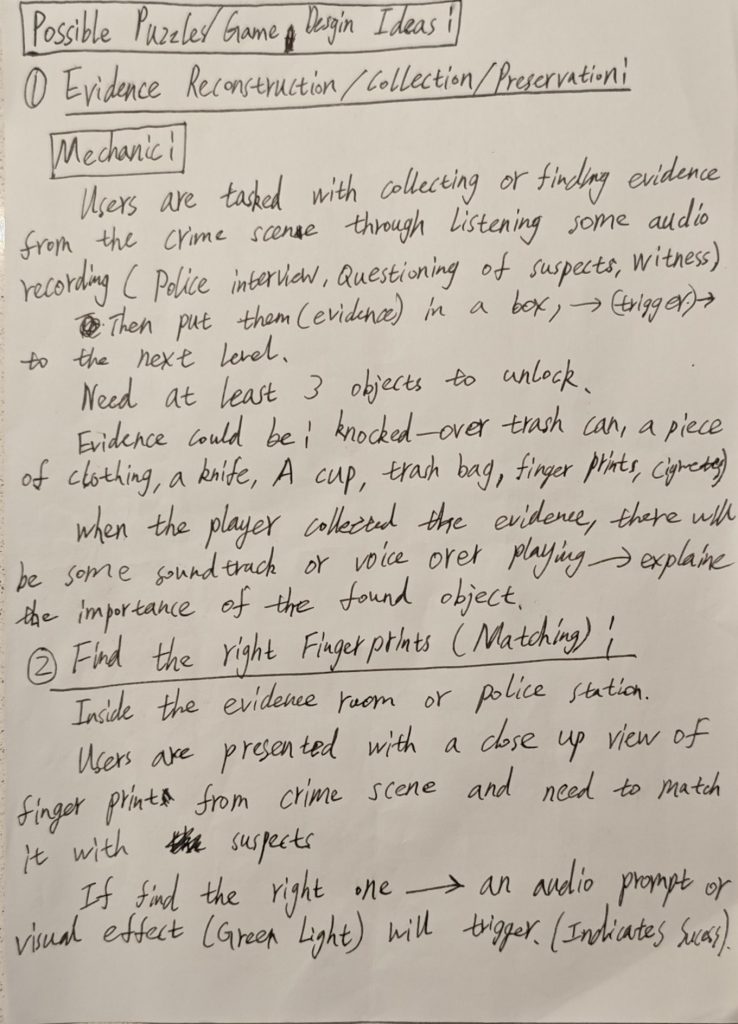 Possible Puzzles/Game Desgin Ideas:
① Evidence Reconstruction/Collection/Preservation:
Mechanic:
Users are tasked with collecting or finding evidence
from the crime scene through listening some audio
recording (Police interview, Questioning of suspects, witness)
Then put them (evidence) in a box, → (trigger) →
to the next level.
Need at least 3 objects to unlock.
Evidence could be: knocked-over trash can, a piece
of clothing, a knife, A cup, trash bag, finger prints, cigretes)
when the player collected the evidence, there will
be some soundtrack or voice over playing → explaine
the importance of the found object.
② Find the right Fingerprints (Matching):
Inside the evidence room or police station.
Users are presented with a close up view of
finger print from crime scene and need to match
it with suspects
If find the right one → an audio prompt or
visual effect (Green Light) will trigger. (Indicates Sucess).